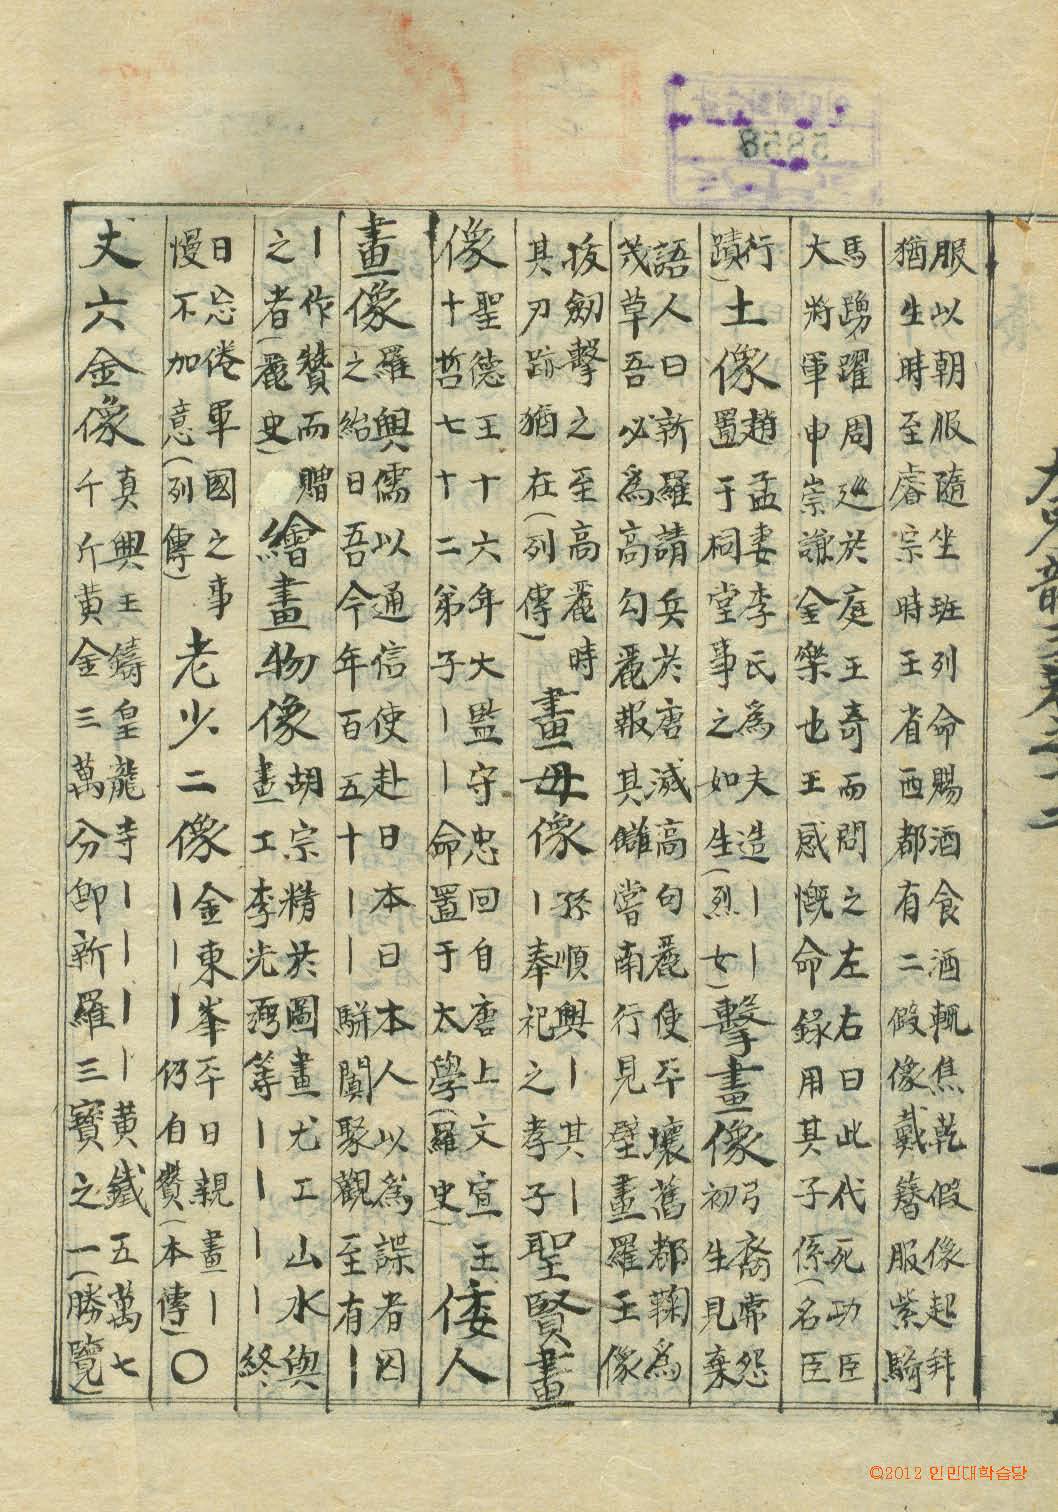 服以朝服隨坐班列命賜酒食酒輒焦乾假像起拜
猶生時至睿宗時王省西都有二假像戴簪服紫騎
馬踴躍周巡於庭王奇而問之左右曰此代死功臣
大將軍申崇謙金樂也王感慨命錄用其子係(名臣
行
蹟)
土像
趙孟妻李氏爲夫造丨丨
置于祠堂事之如生(烈女)
擊畫像
弓裔常怨
初生見棄
語人曰新羅請兵於唐滅高句麗使平壤舊都鞠爲
茂草吾必爲高勾麗報其讎嘗南行見壁畫羅王像
拔劒擊之至高麗時
其刃跡猶在(列傳)
畫母像
孫順興丨其丨
丨奉祀之孝子
聖賢畫
像
聖德王十六年大監守忠回自唐上文宣王
十哲七十二弟子丨丨命置于太學(羅史)
倭人
畫像
羅興儒以通信使赴日本日本人以爲諜者囚
之紿曰吾今年百五十丨丨騈闐聚觀至有丨
丨作贊而贈
之者(麗史)
繪畫物像
胡宗精於圖畫尤工山水與
畫工李光弼等丨丨丨丨終
日忘倦軍國之事
慢不加意(列傳)
老少二像
金東峯平日親畫丨
丨丨丨仍自贊(本傳)〇
丈六金像
眞興王鑄皇龍寺丨丨丨丨黃鐵五萬七
千斤黃金三萬分卽新羅三寶之一(勝覽)
5858
©2012 인민대학습당